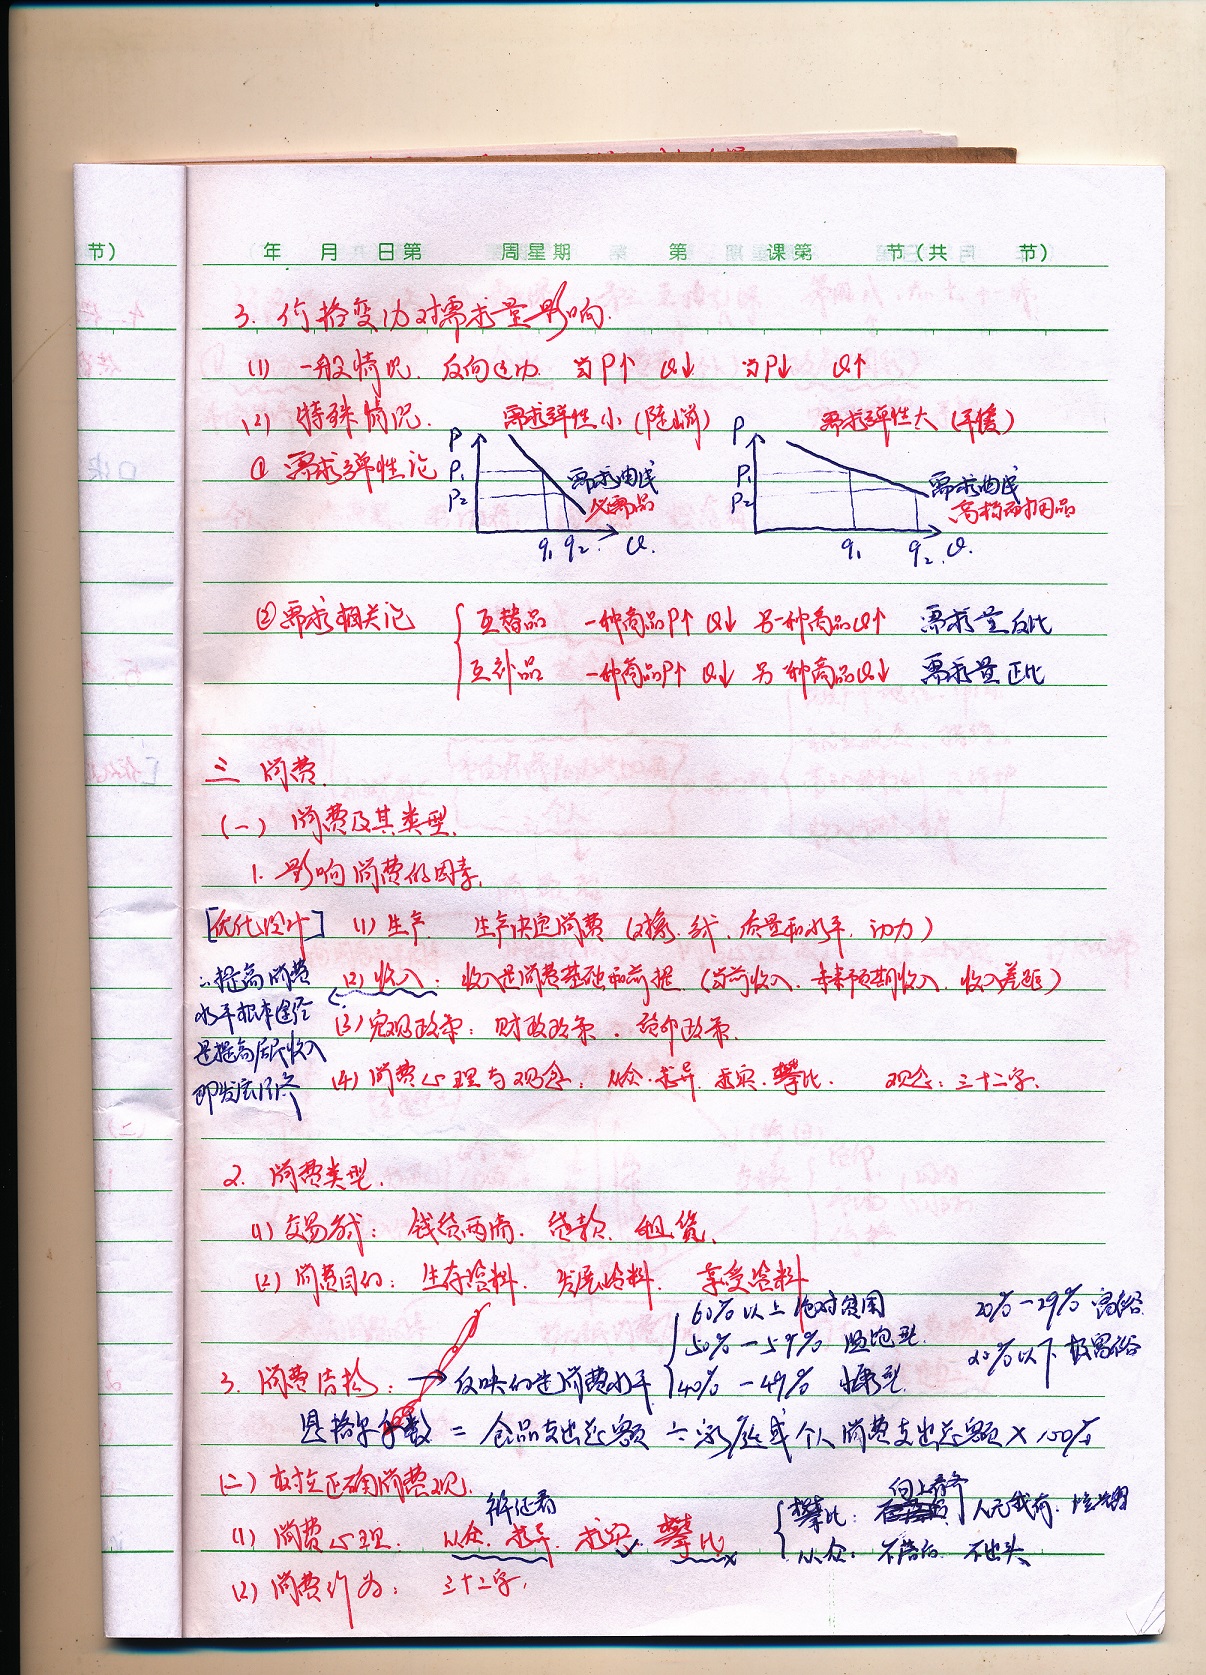 节)
年 月 日第 周星期 第 课第 节(共 节)
3. 价格变动对需求量影响.
(1) 一般情况. 反向运动 当P↑ Q↓ 当P↓ Q↑
(2) 特殊情况. 需求弹性小(陡峭) 需求弹性大(平缓)
① 需求弹性论
P P₁ P₂ 需求曲线 必需品 q₁ q₂ Q.
P P₁ P₂ 需求曲线 高档耐用品 q₁ q₂ Q.
② 需求相关论
互替品 一种商品P↑ Q↓ 另一种商品Q↑ 需求量反比
互补品 一种商品P↑ Q↓ 另一种商品Q↓ 需求量正比
三 消费.
(一) 消费及其类型.
1. 影响消费的因素.
[优化设计] (1) 生产 生产决定消费 (对象. 方式. 质量和水平. 动力)
(2) 收入: 收入是消费基础和前提 (当前收入. 未来预期收入. 收入差距)
∴提高消费
水平根本途径
是提高居民收入
即发展经济
(3) 宏观政策: 财政政策. 货币政策.
(4) 消费心理与观念: 从众. 求异. 求实. 攀比. 观念: 三十二字.
2. 消费类型.
(1) 交易方式: 钱货两清. 贷款. 租赁.
(2) 消费目的: 生存资料. 发展资料. 享受资料
3. 消费结构: → 反映的是消费水平
60%以上 绝对贫困
50%-59% 温饱型.
40%-49% 小康型.
20%-29% 富裕.
20%以下 极富裕
恩格尔系数 = 食品支出总额 ÷ 家庭或个人消费支出总额 × 100%
(二) 树立正确消费观.
辩证看
(1) 消费心理. 从众. 求异. 求实. 攀比
攀比: 向上看齐 人无我有.
从众: 不落后. 不出头
(2) 消费行为: 三十二字.